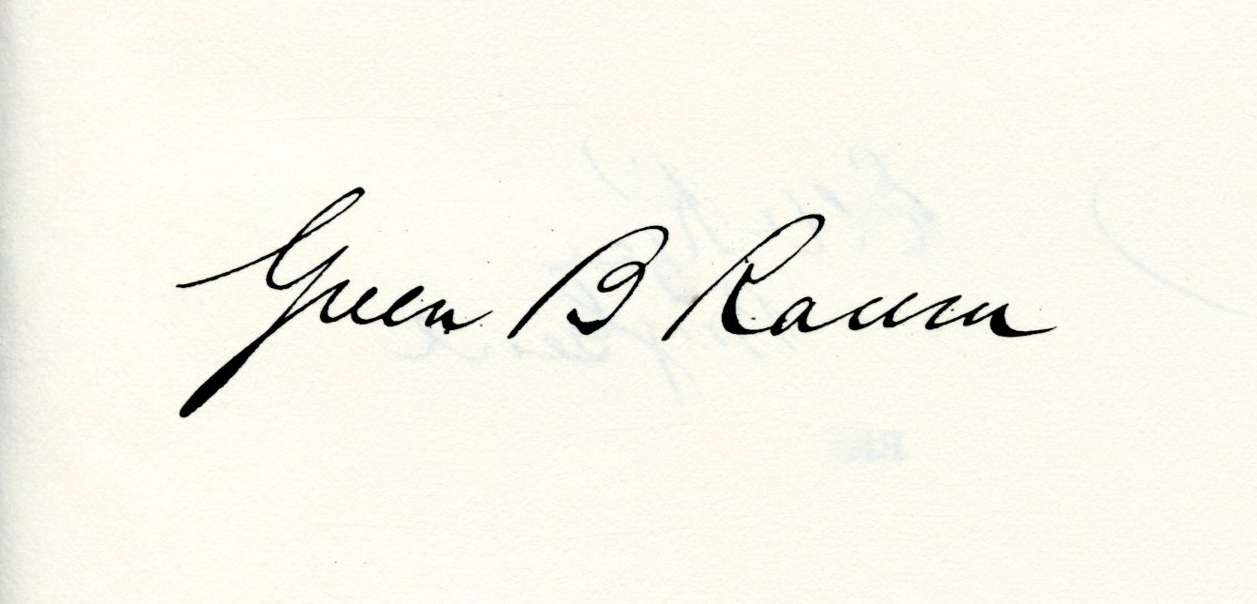 Green B Raum